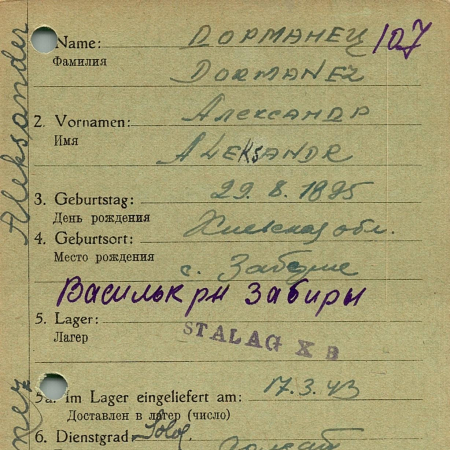 Name: Дорманец 107
Фамилия
DORMANEZ
2. Vornamen: Александр
Имя
ALEKSANDR
3. Geburtstag: 29. 8. 1895
День рождения
4. Geburtsort: Киевская обл.
Место рождения
с. Забирье
Васильк рн Забиры
5. Lager:
Лагерь
STALAG X B
5a. Im Lager eingeliefert am: 17.3.43
Доставлен в лагер (число)
6. Dienstgrad Sold.
солдат
Aleksander
nez